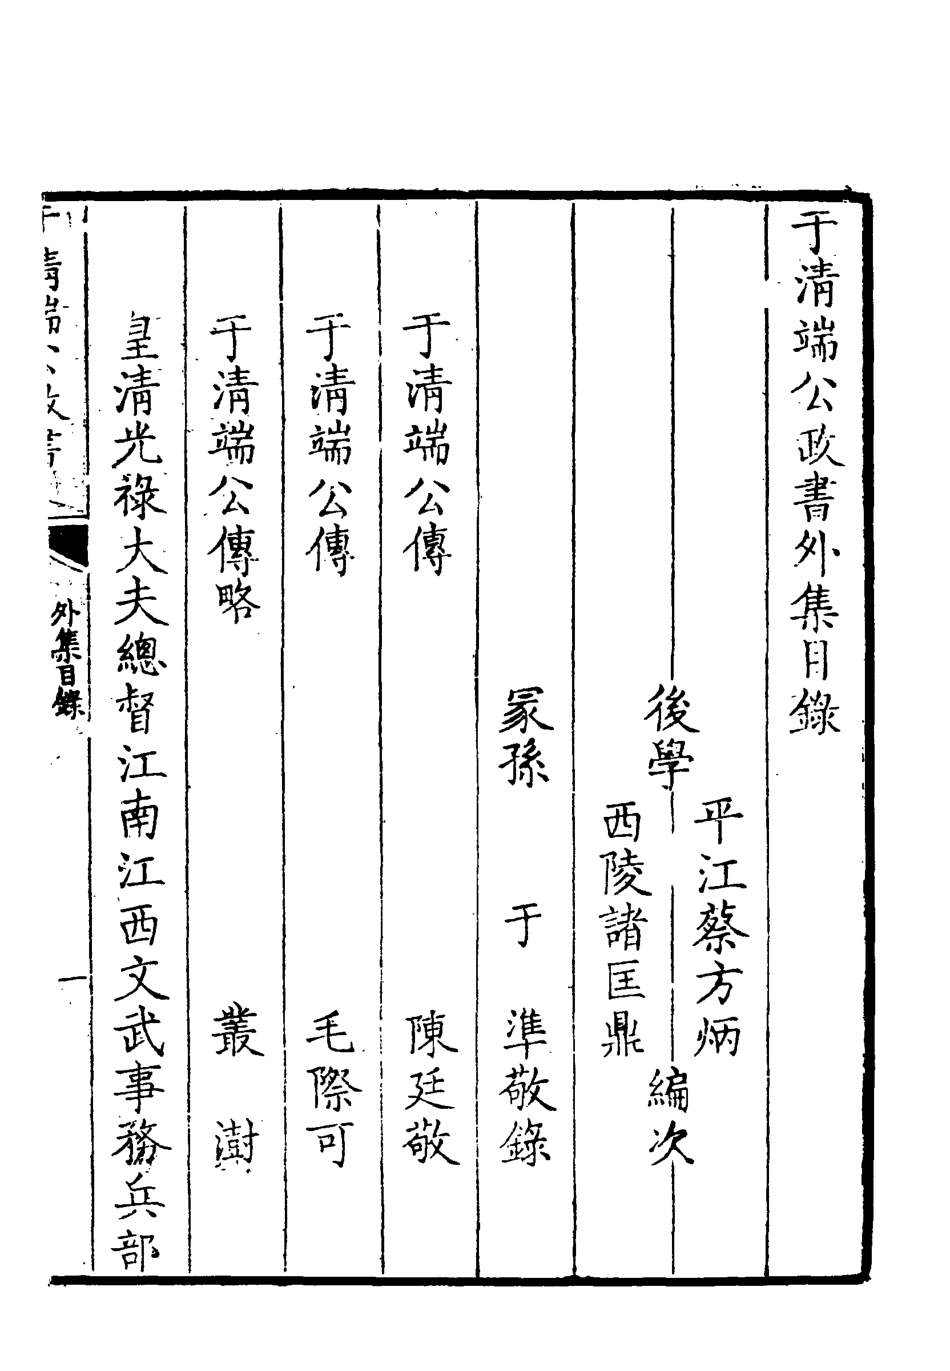 于清端公政書外集目錄
後學
平江蔡方炳
西陵諸匡鼎
編次
冢孫 于 準敬錄
于清端公傳 陳廷敬
于清端公傳 毛際可
于清端公傳略 叢 澍
皇清光祿大夫總督江南江西文武事務兵部
于清端公政書
外集目錄
一